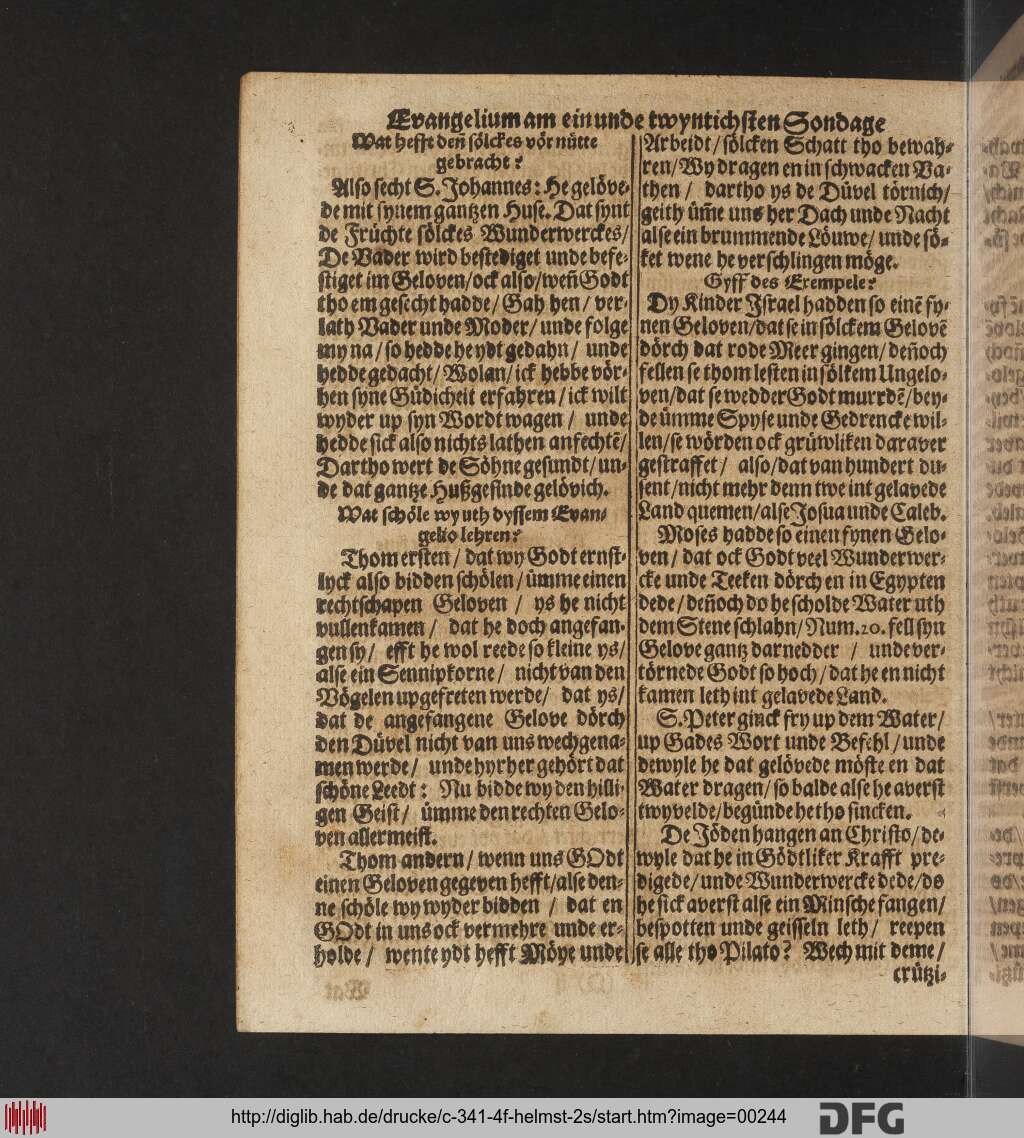 Evangelium am ein unde twyntichsten Sondage
Wat hefft deñ sölckes vör nütte
gebracht?
Also secht S. Johannes: He gelöve-
de mit synem gantzen Huse. Dat synt
de Früchte sölckes Wunderwerckes/
De Vader wird bestediget unde befe-
stiget im Geloven/ock also/weñ Godt
tho em gesecht hadde/Gah hen/ver-
lath Vader unde Moder/unde folge
my na/so hedde he ydt gedahn/ unde
hedde gedacht/Wolan/ick hebbe vör-
hen syne Güdicheit erfahren/ick wilt
wyder up syn Wordt wagen / unde
hedde sick also nichts lathen anfechtē/
Dartho wert de Söhne gesundt/un-
de dat gantze Hußgesinde gelövich.
Wat schöle wy uth dyssem Evan-
gelio lehren?
Thom ersten / dat wy Godt ernst-
lyck also bidden schölen/ümme einen
rechtschapen Geloven / ys he nicht
vullenkamen / dat he doch angefan-
gen sy/ efft he wol reede so kleine ys/
alse ein Sennipkorne / nicht van den
Vögelen upgefreten werde/ dat ys/
dat de angefangene Gelove dörch
den Düvel nicht van uns wechgena-
men werde/ unde hyrher gehört dat
schöne Leedt: Nu bidde wy den hilli-
gen Geist/ ümme den rechten Gelo-
ven allermeist.
Thom andern/wenn uns GOdt
einen Geloven gegeven hefft/alse den-
ne schöle wy wyder bidden / dat en
GOdt in uns ock vermehre unde er-
holde / wente ydt hefft Möye unde
Arbeidt/sölcken Schatt tho bewah-
ren/Wy dragen en in schwacken Va-
then / dartho ys de Düvel törnich/
geith üm̃e uns her Dach unde Nacht
alse ein brummende Löuwe/ unde sö-
ket wene he verschlingen möge.
Gyff des Exempele?
Dy Kinder Israel hadden so einē fy-
nen Geloven/dat se in sölckem Gelovē
dörch dat rode Meer gingen/deñoch
fellen se thom lesten in sölkem Ungelo-
ven/dat se wedder Godt murrdē/bey-
de ümme Spyse unde Gedrencke wil-
len/se wörden ock grüwliken daraver
gestraffet/ also/dat van hundert du-
sent/nicht mehr denn twe int gelavede
Land quemen/alse Josua unde Caleb.
Moses hadde so einen fynen Gelo-
ven / dat ock Godt veel Wunderwer-
cke unde Teeken dörch en in Egypten
dede/deñoch do he scholde Water uth
dem Stene schlahn/Num.20. fell syn
Gelove gantz darnedder / unde ver-
törnede Godt so hoch/dat he en nicht
kamen leth int gelavede Land.
S. Peter ginck fry up dem Water/
up Gades Wort unde Befehl/unde
dewyle he dat gelövede möste en dat
Water dragen/so balde alse he averst
twyvelde/begünde he tho sincken.
De Jöden hangen an Christo/de-
wyle dat he in Gödtliker Krafft pre-
digede/unde Wunderwercke dede/do
he sick averst alse ein Minsche fangen/
bespotten unde geisseln leth/ reepen
se alle tho Pilato? Wech mit deme/
crützi-
http://diglib.hab.de/drucke/c-341-4f-helmst-2s/start.htm?image=00244
DFG